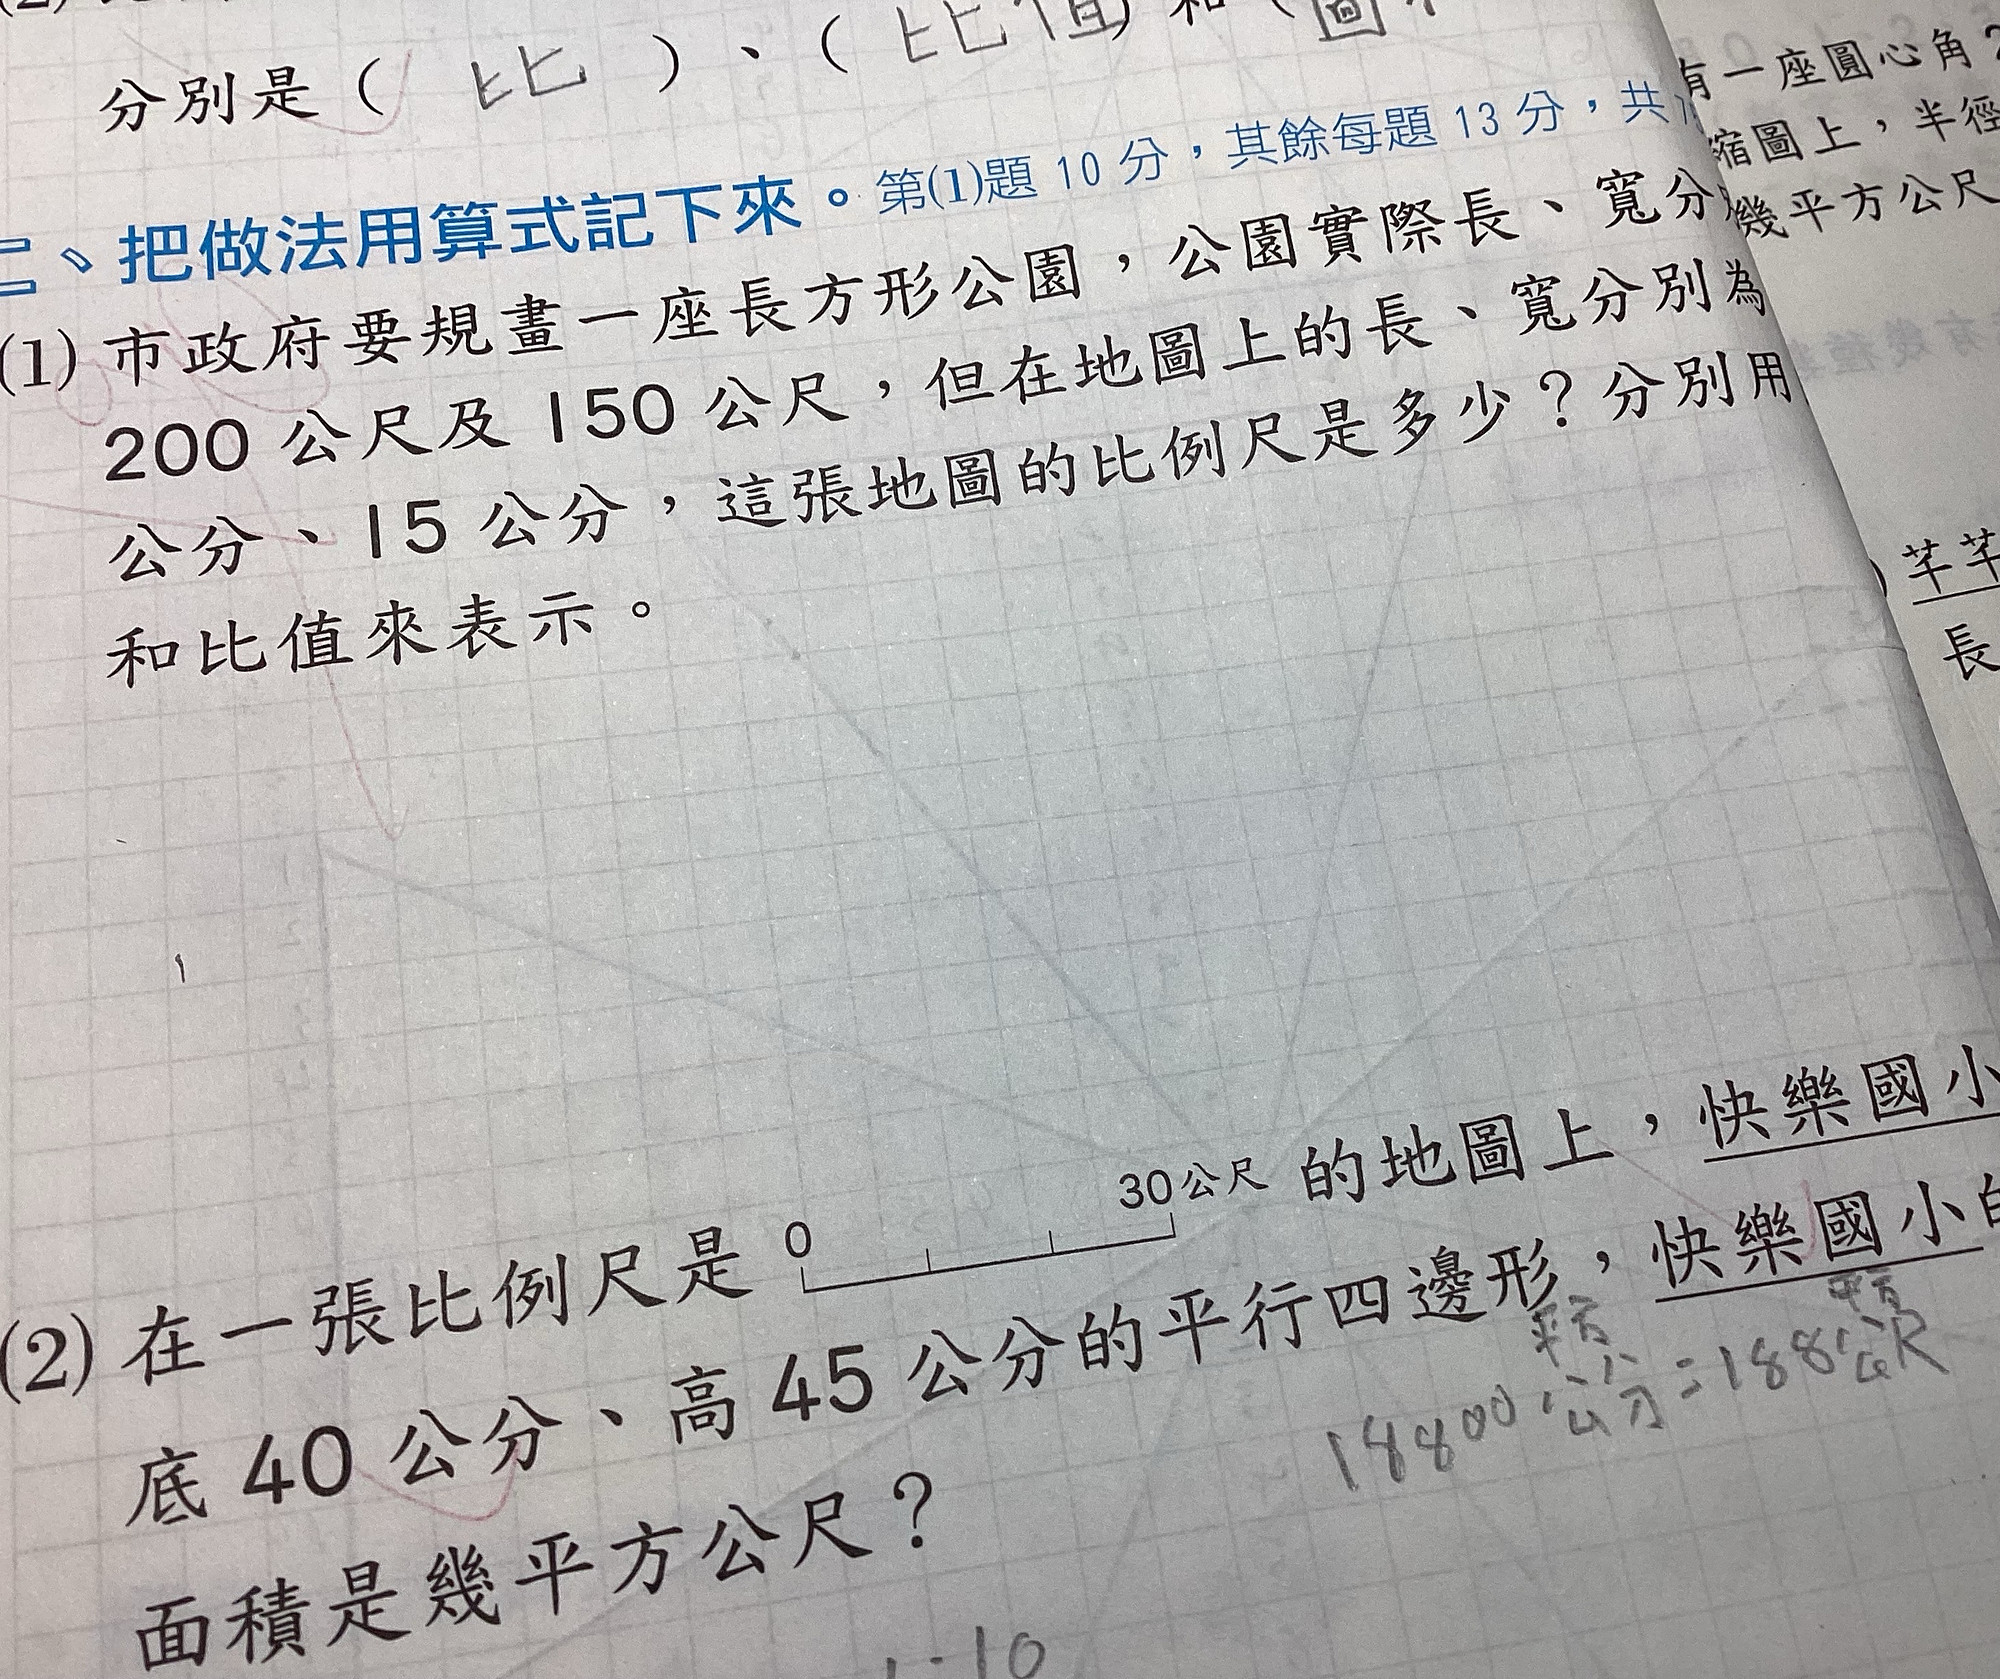 分別是（ 比 ）、（ 比值 ）和（圖
二、把做法用算式記下來。第(1)題 10 分，其餘每題 13 分，共
(1) 市政府要規畫一座長方形公園，公園實際長、寬分
200 公尺及 150 公尺，但在地圖上的長、寬分別為
公分、15 公分，這張地圖的比例尺是多少？分別用
和比值來表示。
(2) 在一張比例尺是 0 30公尺 的地圖上，快樂國小
底 40 公分、高 45 公分的平行四邊形，快樂國小的
面積是幾平方公尺？
18800平方公分=188平方公尺
1:10
有一座圓心角
縮圖上，半徑
幾平方公尺
芊芊
長